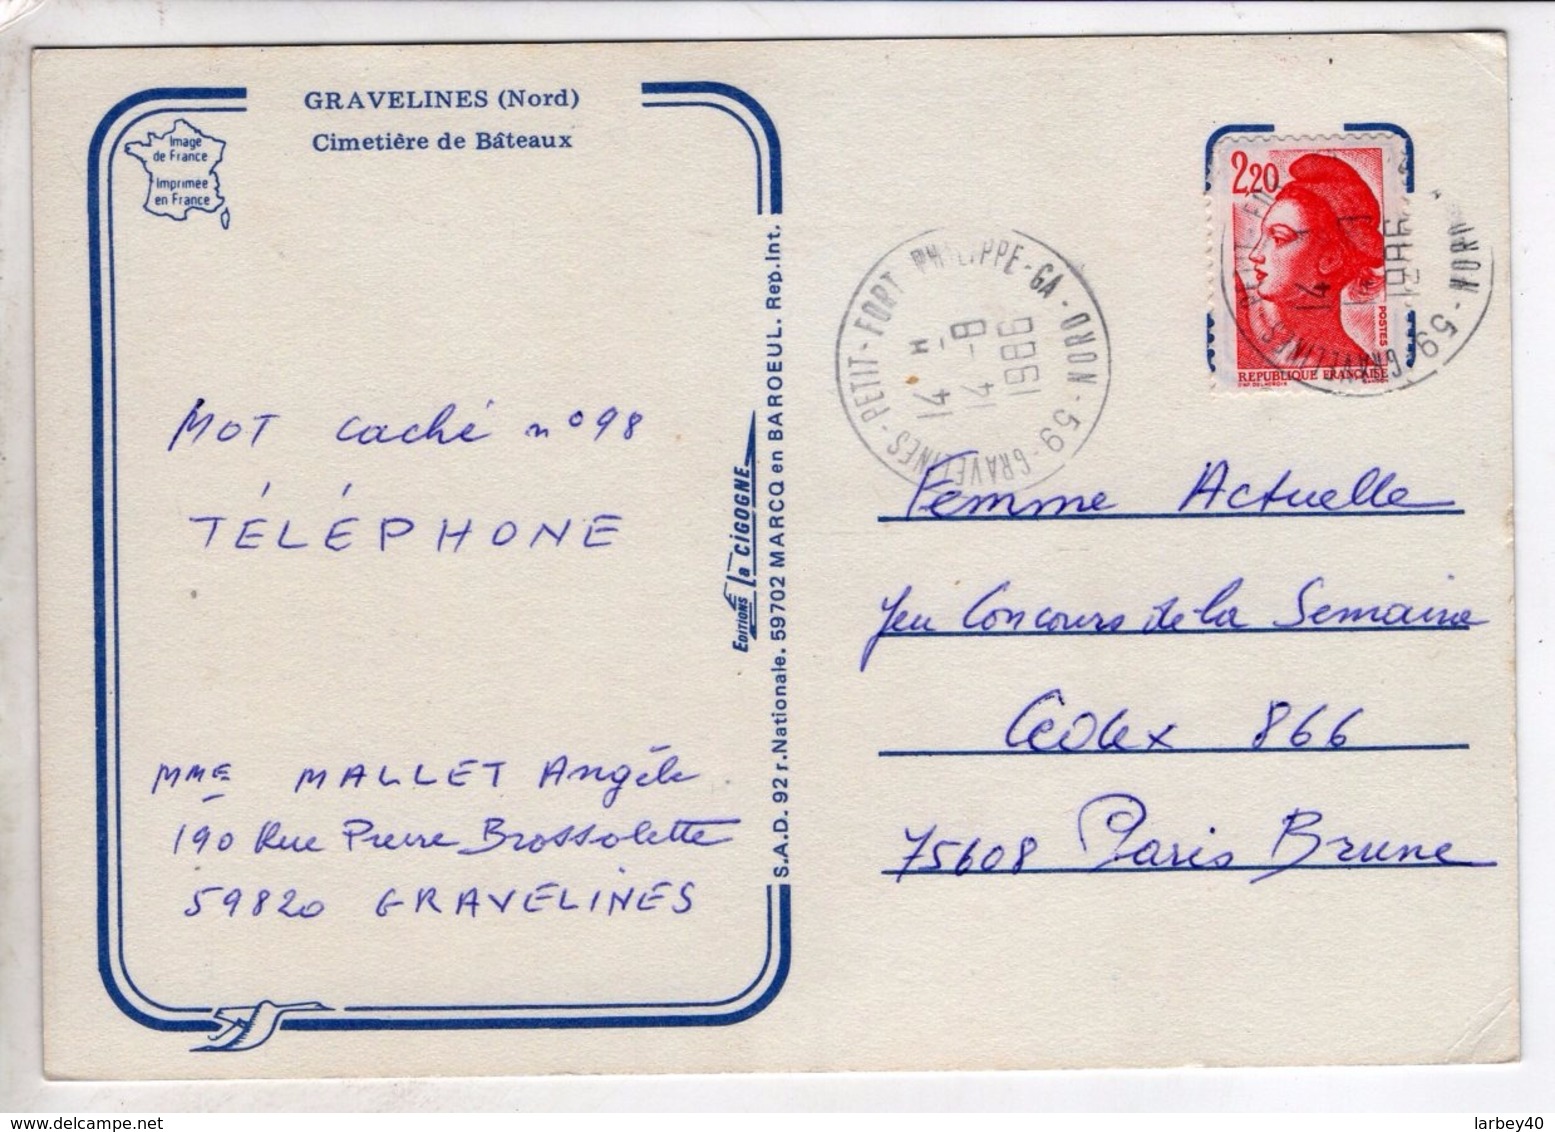 GRAVELINES (Nord)
Cimetière de Bâteaux
Image
de France
Imprimée
en France
MOT caché n° 98
TÉLÉPHONE
MME MALLET Angèle
190 Rue Pierre Brossolette
59820 GRAVELINES
EDITIONS la CIGOGNE
S.A.D. 92 r. Nationale. 59702 MARCQ en BAROEUL. Rep. Int.
GRAVELINES - PETIT - FORT PHILIPPE - GA - NORD - 59
14 H
4 - 8
1986
2,20
POSTES
REPUBLIQUE FRANÇAISE
14
1986
GRAVELINES - PETIT
NORD - 59
Femme Actuelle
Jeu Concours de la Semaine
Cedex 866
75608 Paris Brune
larbey40